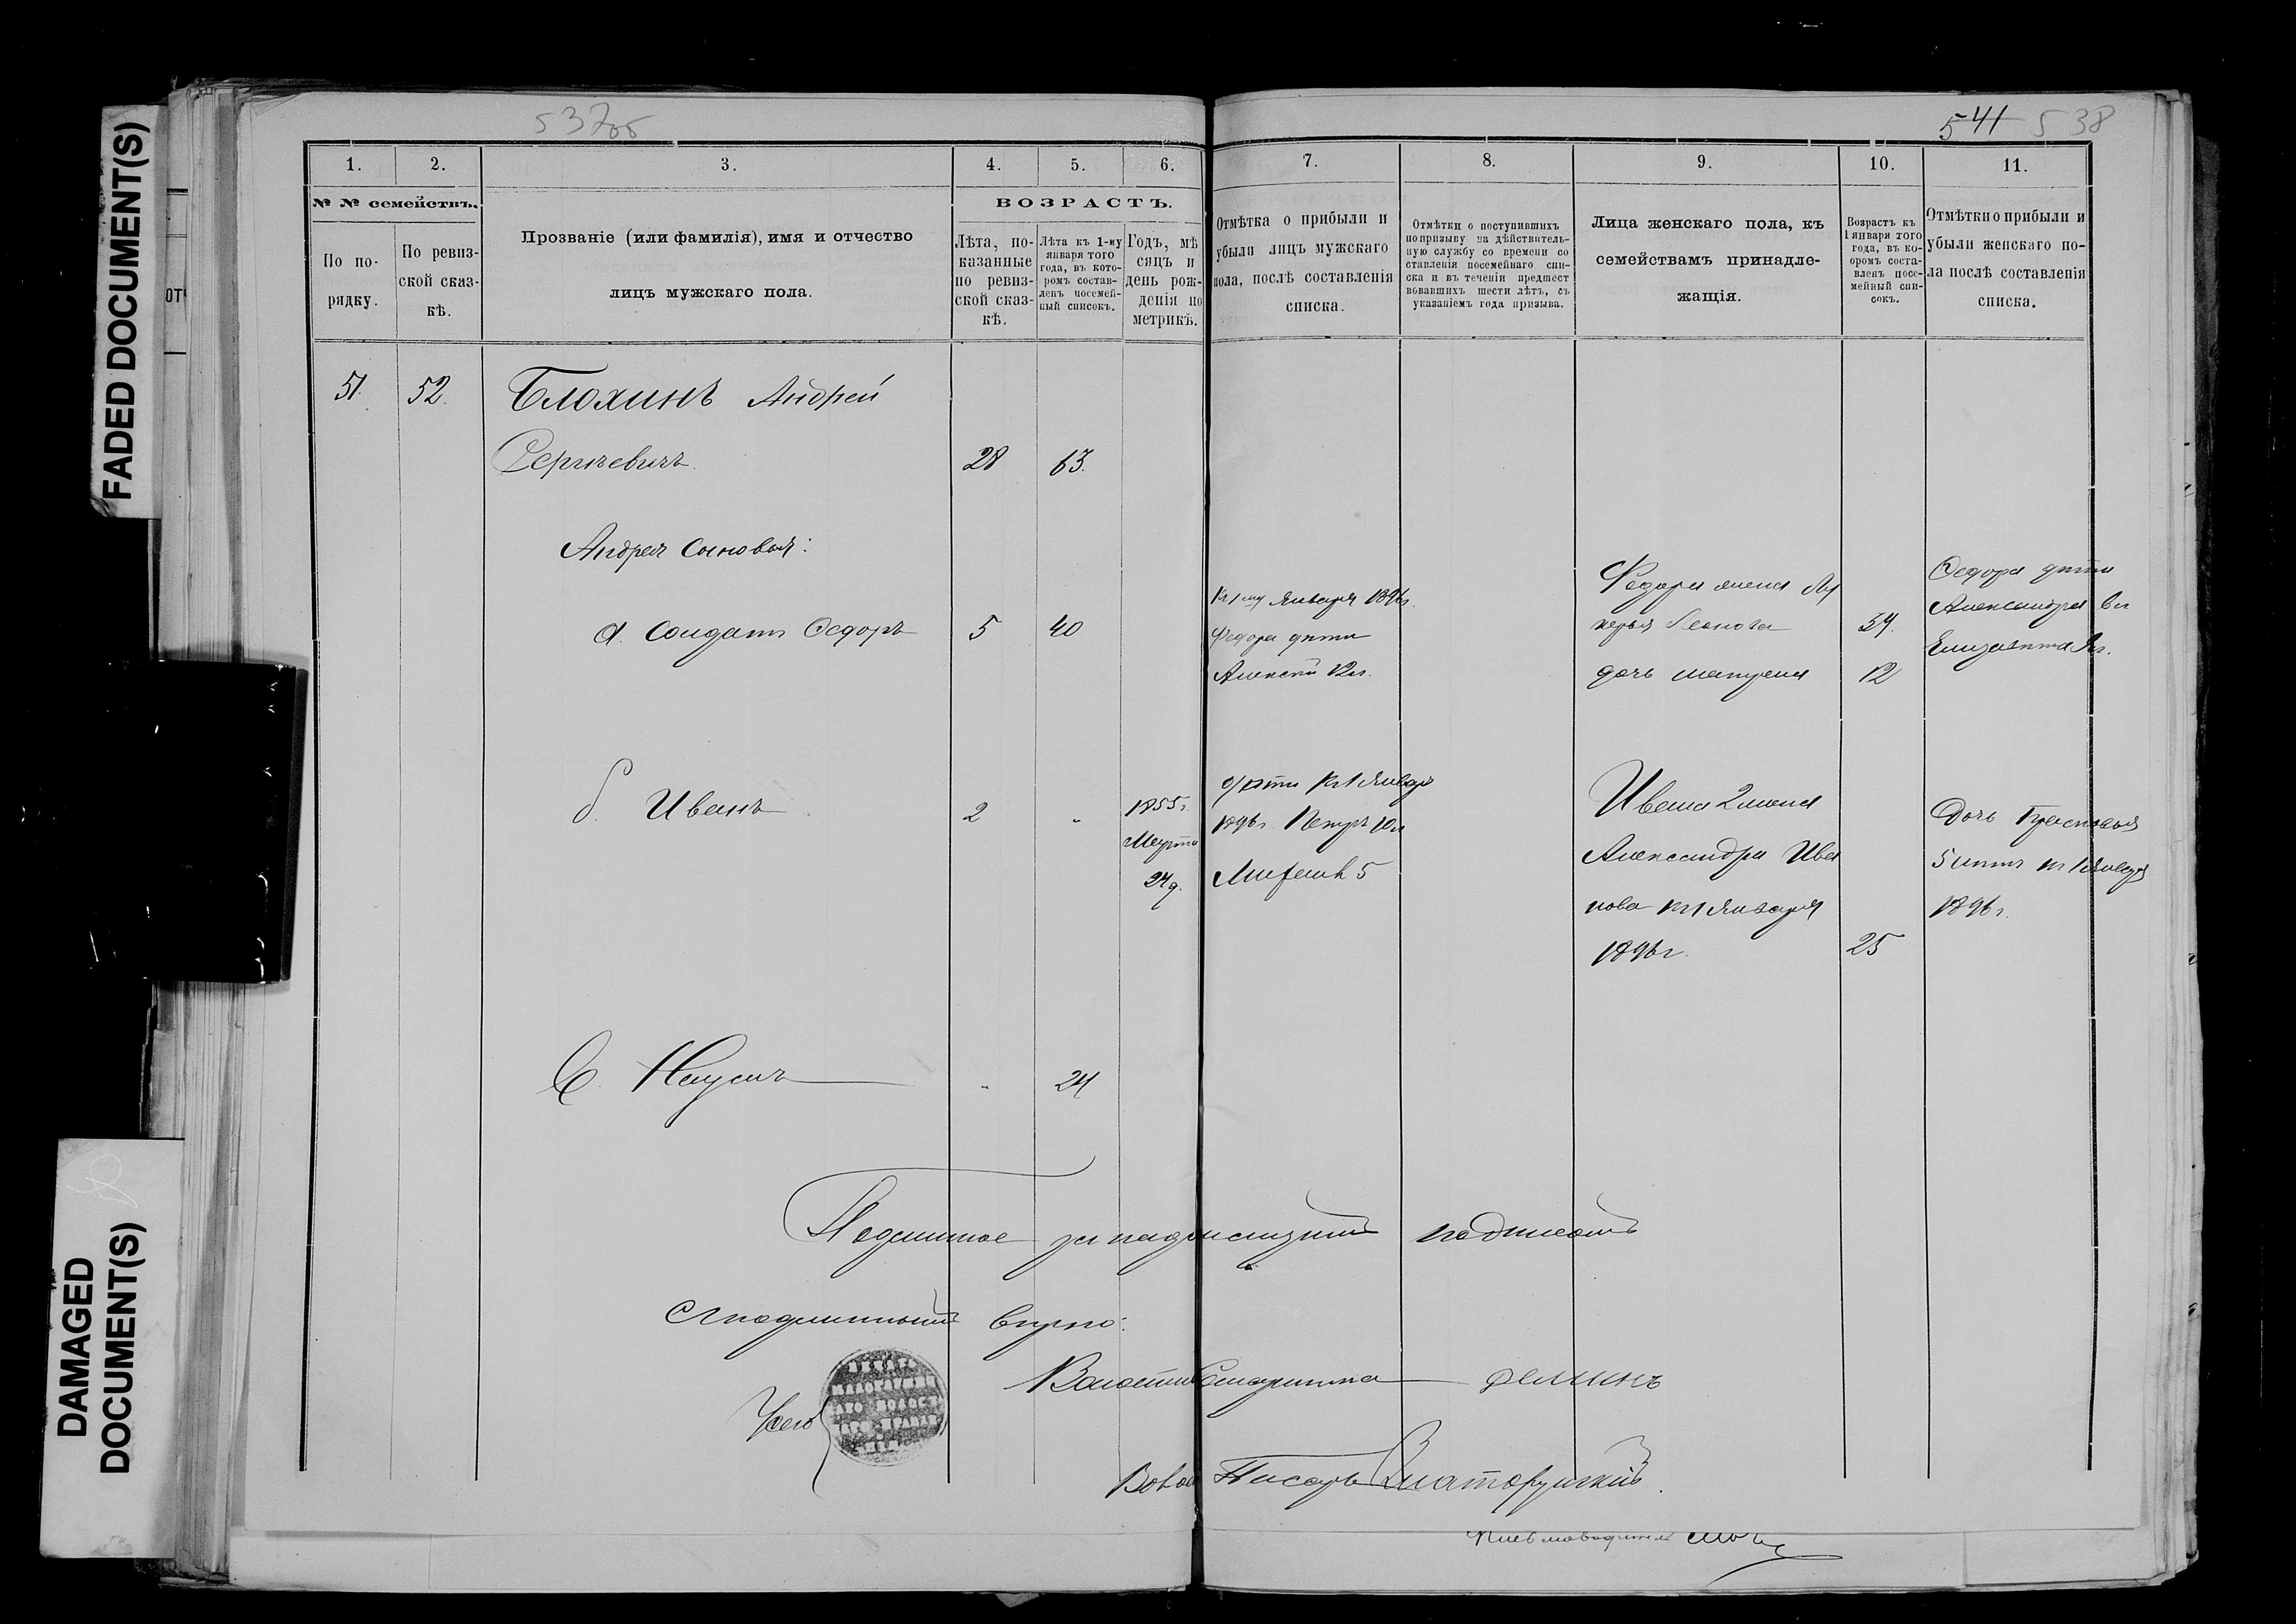 FADED DOCUMENT(S)
DAMAGED
DOCUMENT(S)
537об
541 538
1. 2. 3. 4. 5. 6. 7. 8. 9. 10. 11.
№ № семействъ.
По по-
рядку.
По ревиз-
ской сказ-
кѣ.
Прозваніе (или фамилія), имя и отчество
лицъ мужскаго пола.
ВОЗРАСТЪ.
Лѣта, по-
казанные
по ревиз-
ской сказ-
кѣ.
Лѣта къ 1-му
января того
года, въ кото-
ромъ состав-
ленъ посемей-
ный списокъ.
Годъ, мѣ
сяцъ и
день рож-
денія по
метрикѣ.
Отмѣтка о прибыли и
убыли лицъ мужскаго
пола, послѣ составленія
списка.
Отмѣтки о поступившихъ
по призыву на дѣйствитель-
ную службу со времени со
ставленія посемейнаго спи-
ска и въ теченіи предшест
вовавшихъ шести лѣтъ, съ
указаніемъ года призыва.
Лица женскаго пола, къ
семействамъ принадле-
жащія.
Возрастъ къ
1 января того
года, въ ко-
оромъ соста-
вленъ посе-
мейный спи-
сокъ.
Отмѣтки о прибыли и
убыли женскаго по-
ла послѣ составленія
списка.
51. 52. Блохинъ Андрей
Сергѣевичъ 28 63.
Андрея сыновья:
а. Солдатъ Ѳедоръ 5 40
Къ 1му Января 1896г.
Федора дѣти
Алексѣй 12л.
Федора жена Лу
керья Леонова 39.
дочь Матрена 12
Ѳедора дѣти
Александра 6л
Елизавета
б. Иванъ 2 „
1855г.
Марта
24д.
дѣти къ 1 Января
1896г. Петръ 10л
Михаилъ 5
Ивана 2 жена
Александра Ива
нова къ 1 Января
1896г. 25
Дочь Прасковья
5 лѣтъ къ 1 Января
1896г.
в. Наумъ „ 24
Подлинное за надлежащимъ подписомъ
Съ подлиннымъ вѣрно:
Волостной Старшина
Волос Писарь